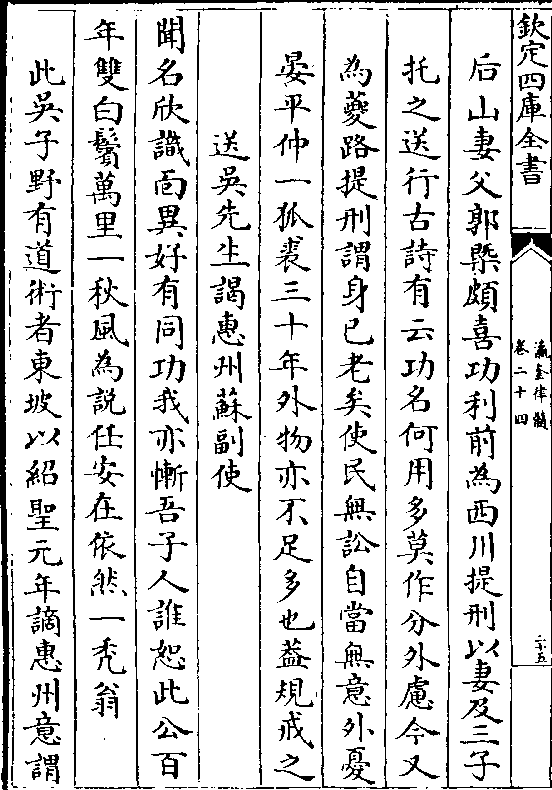 欽定四庫全書
瀛奎律髓
卷二十四
二十五
后山妻父郭槩頗喜功利前為西川提刑以妻及三子
托之送行古詩有云功名何用多莫作分外慮今又
為夔路提刑謂身已老矣使民無訟自當無意外憂
晏平仲一狐裘三十年外物亦不足多也葢規戒之
送吳先生謁惠州蘇副使
聞名欣識面異好有同功我亦慚吾子人誰恕此公百
年雙白鬢萬里一秋風為説任安在依然一秃翁
此吳子野有道術者東坡以紹聖元年謫惠州意謂